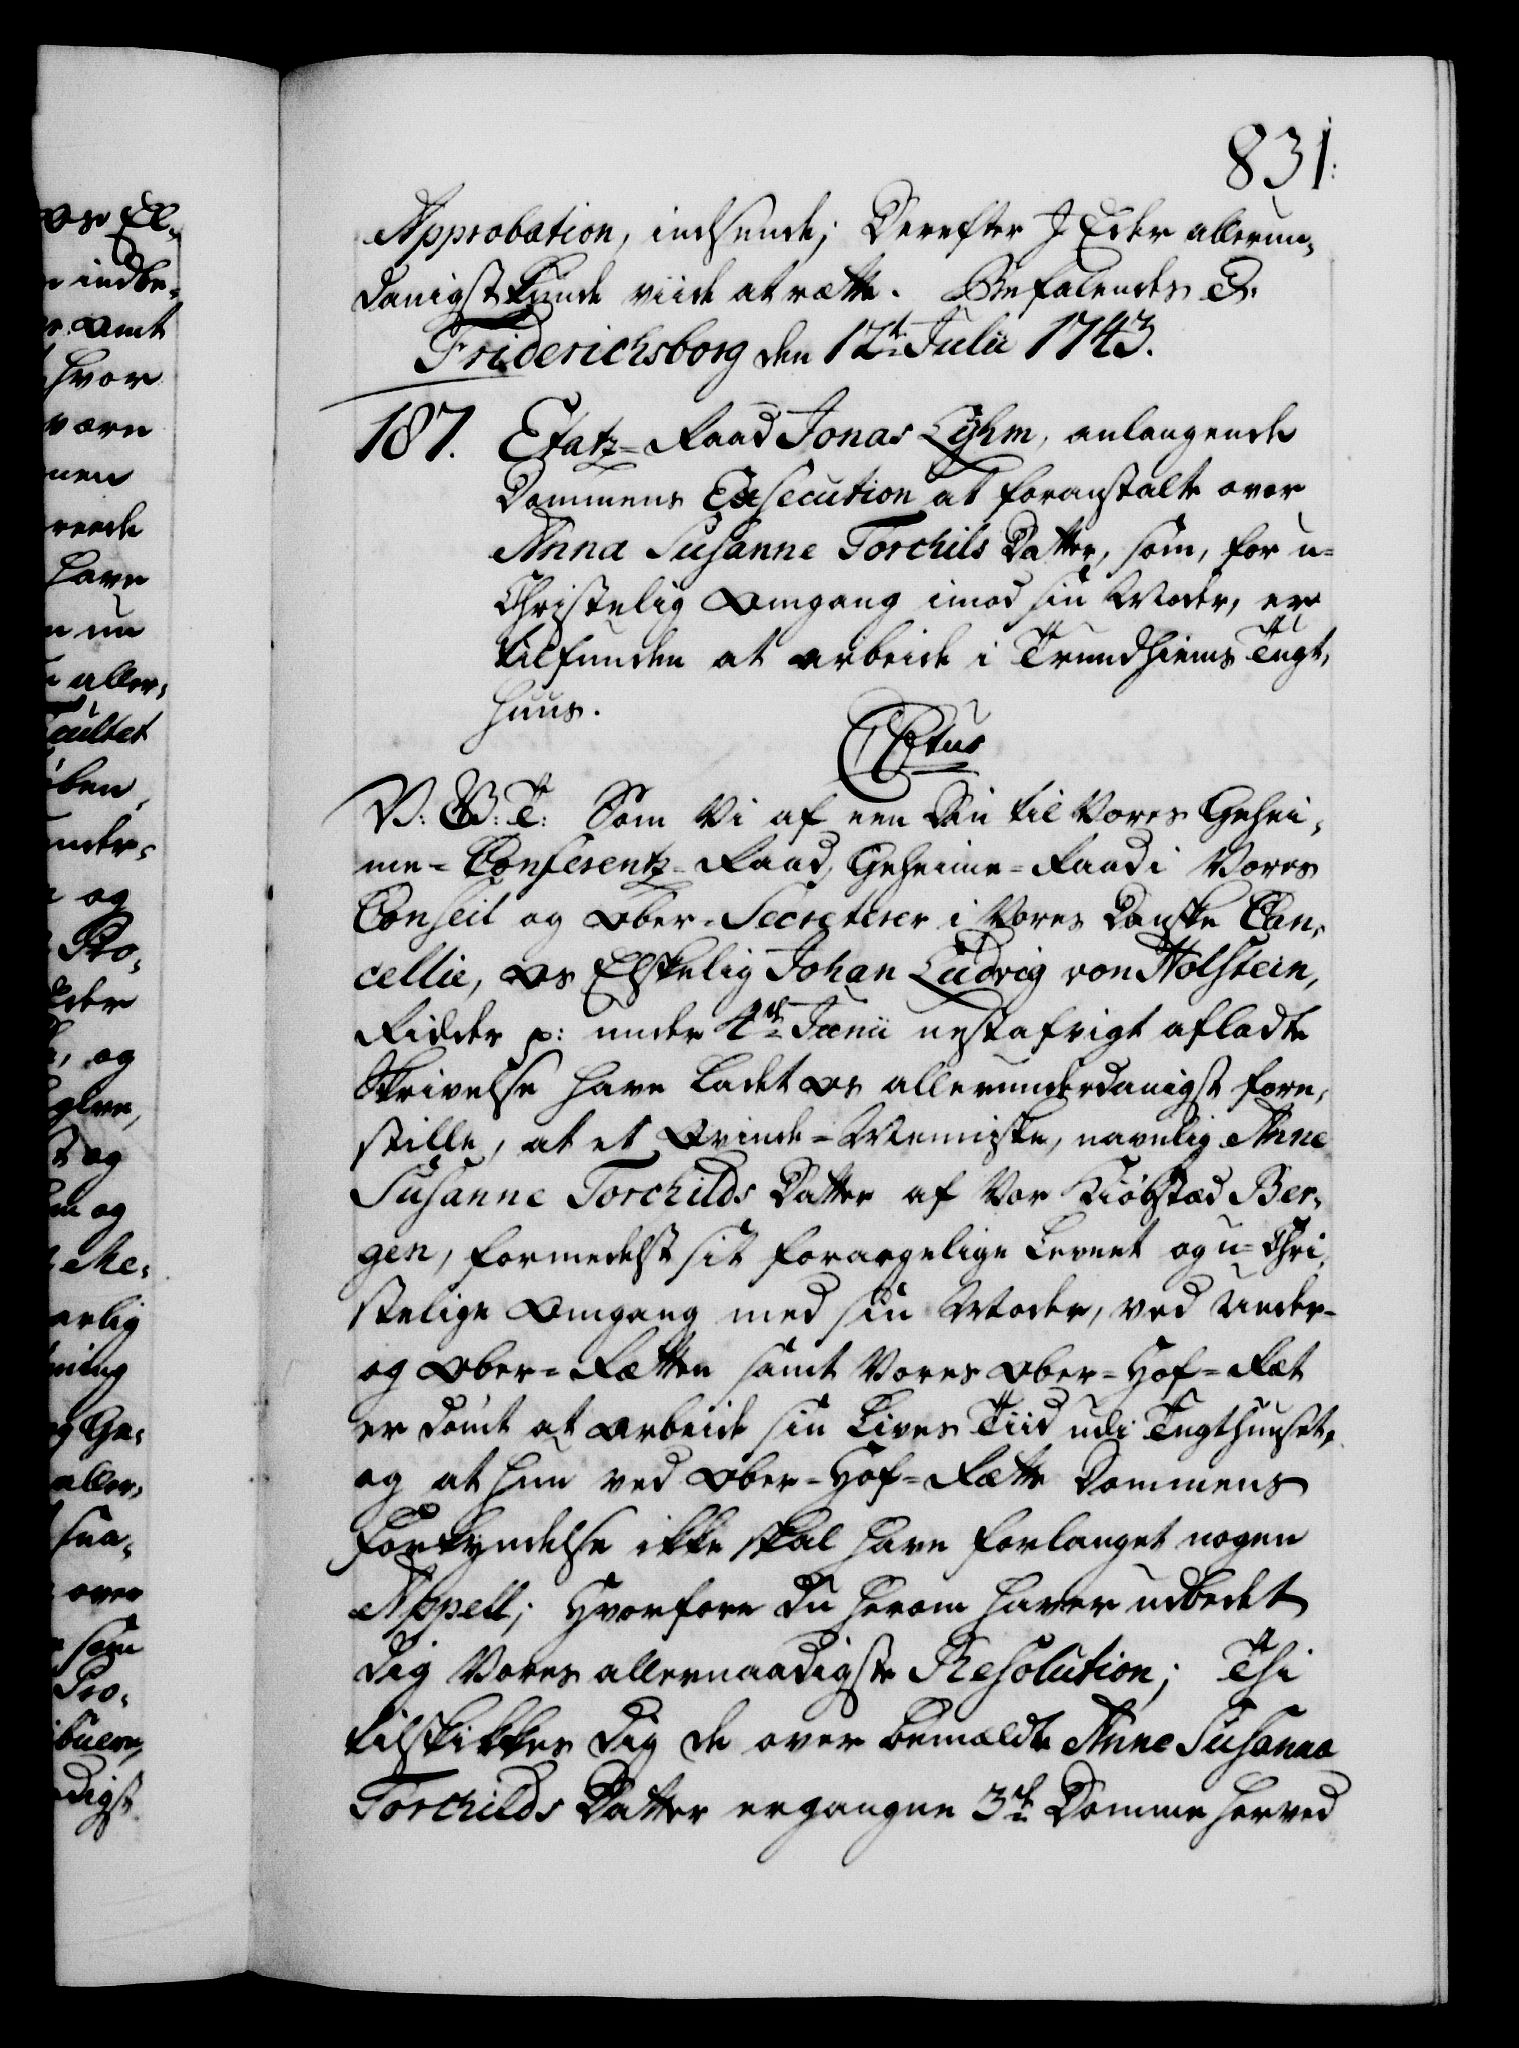 831.
Approbation, indsende; Derefter I Eder allerun,
danigst kunde viide at rætte. Befalendes &.
Friderichsborg den 12te Julii 1743.
187. Etatz-Raad Jonas Lyhm, anlangende
Dommens Execution at foranstalte over
Anna Susanne Torchils Datter, som, for u-
Christelig Omgang imod sin Moder, er
tilfunden at arbeide i Trundhiems Tugt,
huus.
C Ptus
V: G: T: Som Vi af een Din til Vores Gehei,
me-Conferentz-Raad, Geheime-Raad i Vores
Conseil og Ober-Secreterer i Vores Danske Can,
cellie, Os Elskelig Johan Ludvig von Holstein,
Ridder p: under 4de Junii nestafvigt afladte
Skrivelse have ladet Os allerunderdanigst fore,
stille, at et Qvinde-Menniske, navnlig Anne
Susanne Torchilds Datter af Vor Kiøbstæd Ber,
gen, formedelst sit forargelige Levnet og u-Chri,
stelige Omgang med sin Moder, ved Under-
og Ober-Rætten samt Vores Ober-Hof-Ræt
er dømt at arbeide sin Lives Tiid udi Tugthuuset,
og at hun ved Ober-Hof-Rætts Dommens
Forkyndelse ikke skal have forlanget nogen
Appell; Hvorfore Du herom haver udbedet
dig Vores allernaadigste Resolution; Thi
tilskikkes dig de over bemældte Anne Susanna
Torchilds Datter ergangne 3de Domme herved